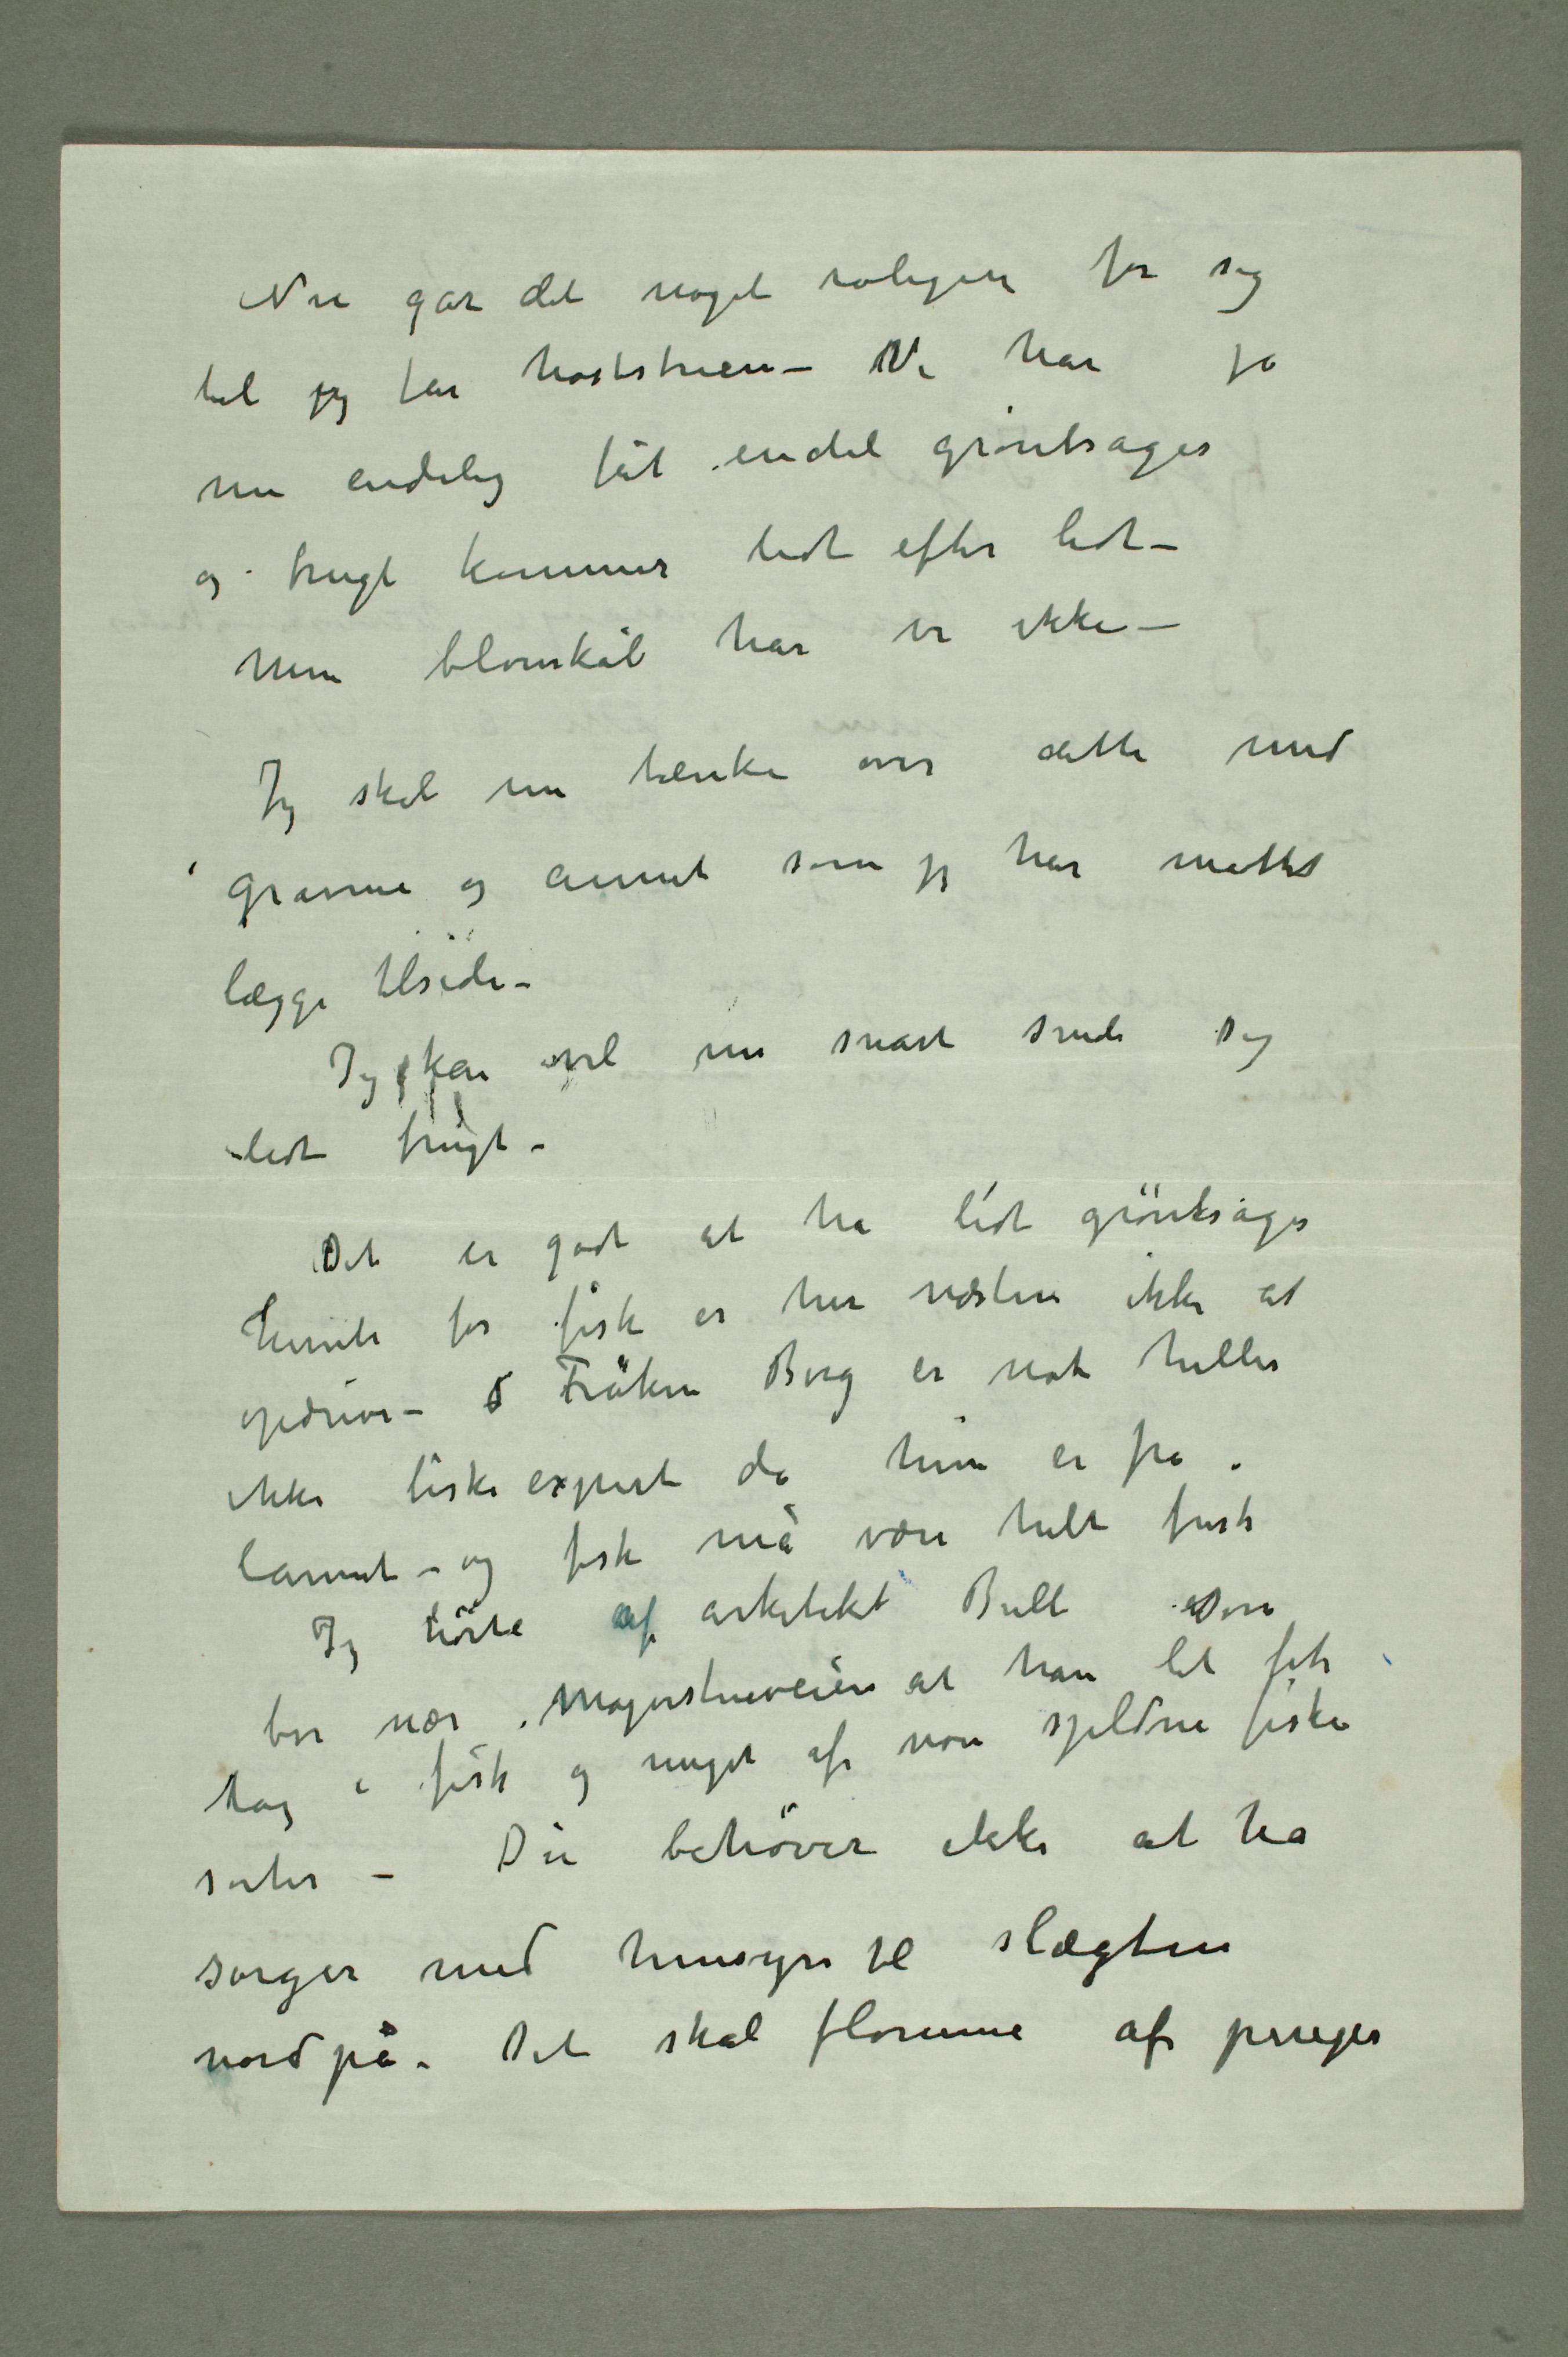 Nu går det noget roligere for sig
til jeg får høststrien – Vi har jo
nu endelig fåt endel grøntsager
og frugt kommer lidt efter lidt –
men blomkål har vi ikke –
Jeg skal nu tænke over dette med
gravene og annet som jeg har måttet
lægge tilside –
Jeg kan vel nu snart sende dig
lidt frugt –
Det er godt at ha lidt grøntsager
hernede for fisk er her næsten ikke at
opdrive – Frøken Borg er nok heller
ikke fiskeexpert da hun er fra
lannet – og fisk må være helt frisk
Jeg hørte af arkitekt Bull som
bor nær Majorstueveien at han let fik
tag i fisk og meget af våre sjeldne fiske
sorter – Du behøver ikke at ha
sorger med hensyn til slægten
nordpå. Det skal flomme af penger